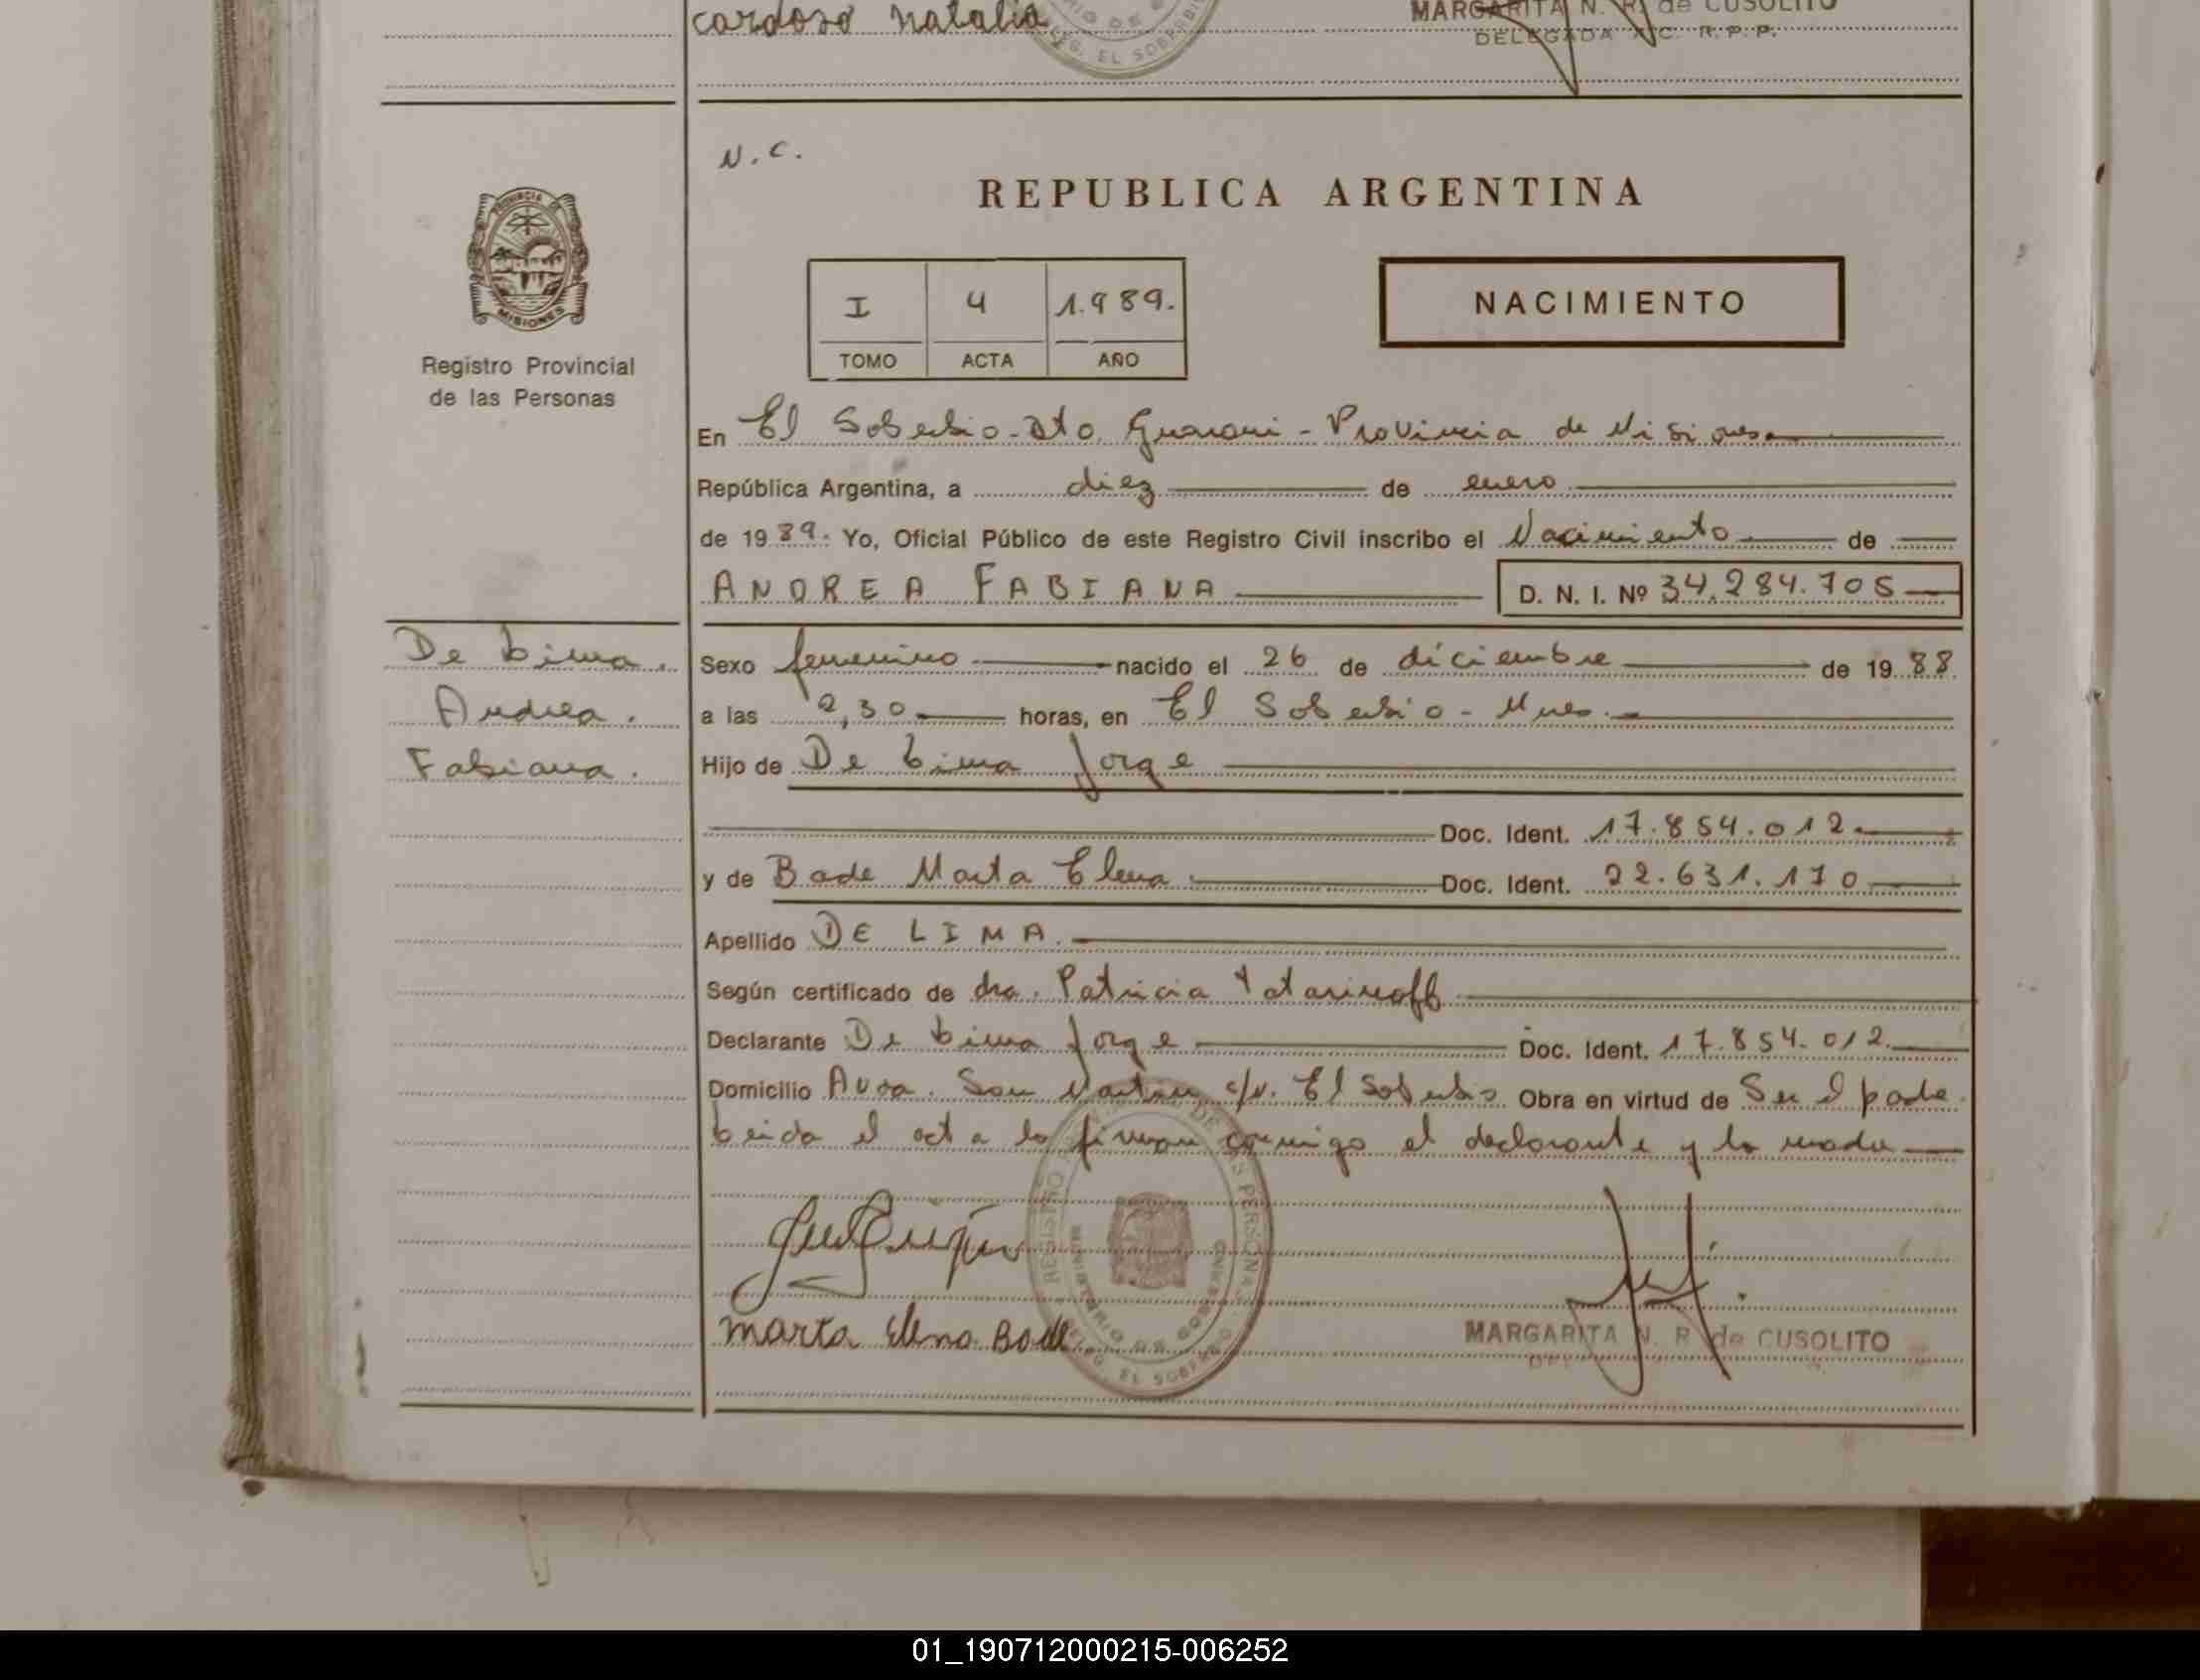 cardozo Natalia
MARGARITA N. R. de CUSOLITO
DELEGADA R. P. P.
N.C.
REPUBLICA ARGENTINA
PROVINCIA DE
MISIONES
Registro Provincial
de las Personas
I 4 1.989.
TOMO ACTA AÑO
NACIMIENTO
En El Soberbio-Dto. Guarani - Provincia de Misiones
República Argentina, a diez de enero
de 1989. Yo, Oficial Público de este Registro Civil inscribo el Nacimiento de
ANDREA FABIANA D. N. I. Nº 34.284.705
De Lima.
Andrea.
Fabiana.
Sexo femenino nacido el 26 de diciembre de 1988
a las 2,30 horas, en El Soberbio - Mnes.
Hijo de De Lima Jorge
Doc. Ident. 17.854.012
y de Bade Marta Elena Doc. Ident. 22.631.170
Apellido DE LIMA.
Según certificado de dra. Patricia Tatarinoff
Declarante De Lima Jorge Doc. Ident. 17.854.012.
Domicilio Avda. San Martin s/n. El Soberbio Obra en virtud de Ser el padre
Leida el acta la firman conmigo el declarante y la madre
REGISTRO DE LAS PERSONAS
MINISTERIO DE GOBIERNO
DELEG. EL SOBERBIO
Marta Elena Bade
MARGARITA N. R. de CUSOLITO
01_190712000215-006252